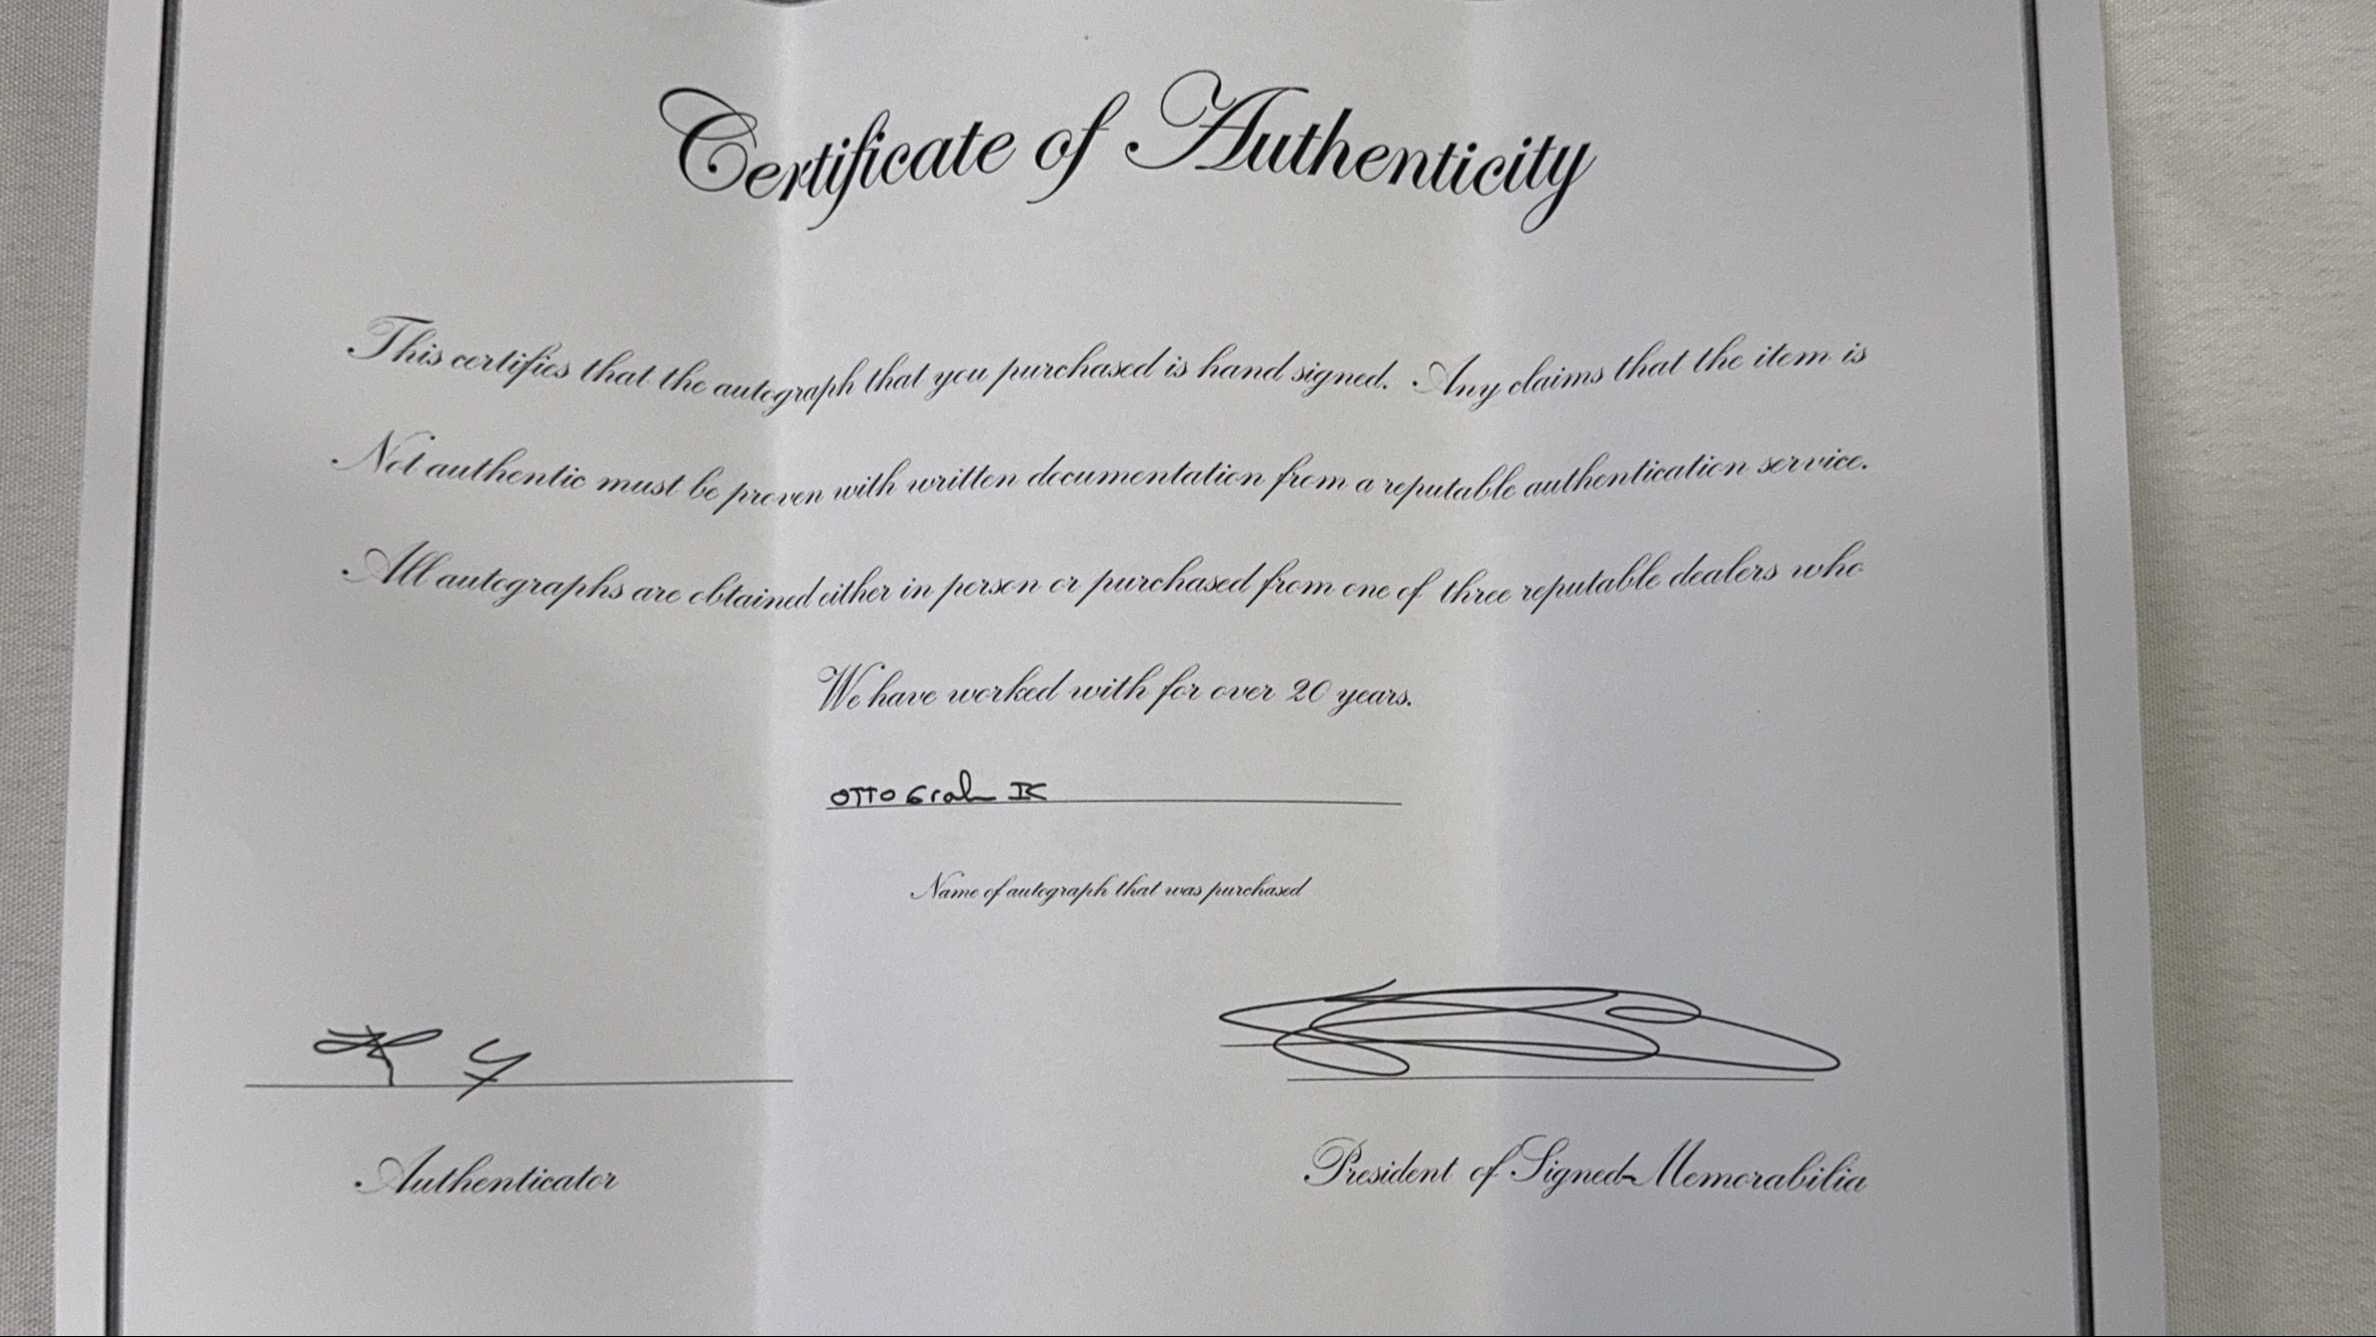 Certificate of Authenticity
This certifies that the autograph that you purchased is hand signed. Any claims that the item is
Not authentic must be proven with written documentation from a reputable authentication service.
All autographs are obtained either in person or purchased from one of three reputable dealers who
We have worked with for over 20 years.
OTTO
Name of autograph that was purchased
Authenticator
President of Signed Memorabilia